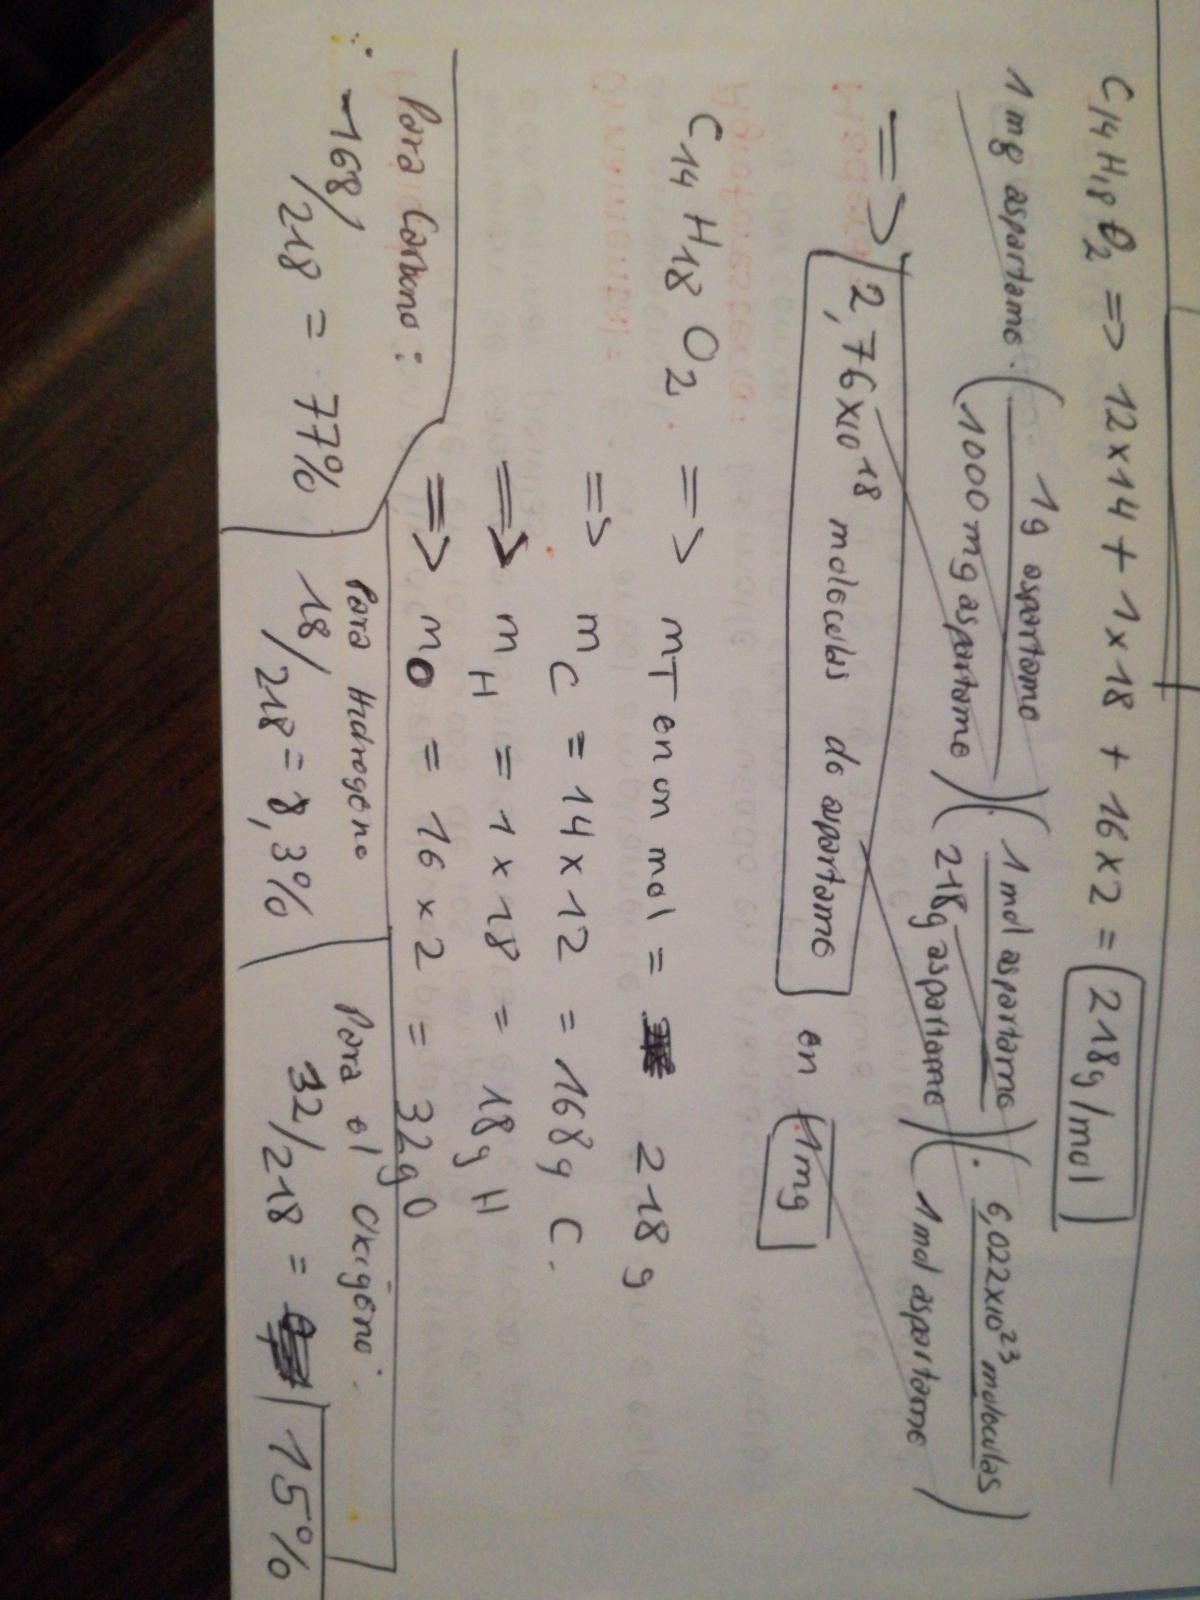 C14 H18 O2 => 12x14 + 1x18 + 16x2 = 218g/mol
1 mg aspartame . ( 1g aspartame / 1000 mg aspartame ) . ( 1 mol aspartame / 218g aspartame ) . ( 6,022x10^23 moleculas / 1 mol aspartame )
=> 2,76x10^18 moleculas de aspartame en 1mg
C14 H18 O2 => mT en un mol = 218 g
=> mC = 14 x 12 = 168g C.
=> mH = 1 x 18 = 18g H
=> mO = 16 x 2 = 32g O
Para Carbono :
∴ 168/218 = 77%
Para Hidrogeno
18/218 = 8,3%
Para el Oxigeno.
32/218 = 15%